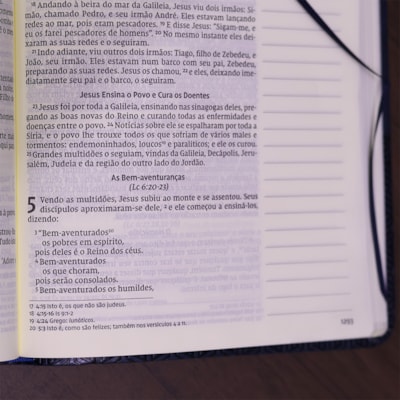 18 Andando à beira do mar da Galileia, Jesus viu dois irmãos: Si-
mão, chamado Pedro, e seu irmão André. Eles estavam lançando
redes ao mar, pois eram pescadores. 19 E disse Jesus: "Sigam-me, e
eu os farei pescadores de homens". 20 No mesmo instante eles dei-
xaram as suas redes e o seguiram.
21 Indo adiante, viu outros dois irmãos: Tiago, filho de Zebedeu, e
João, seu irmão. Eles estavam num barco com seu pai, Zebedeu,
preparando as suas redes. Jesus os chamou, 22 e eles, deixando ime-
diatamente seu pai e o barco, o seguiram.
Jesus Ensina o Povo e Cura os Doentes
23 Jesus foi por toda a Galileia, ensinando nas sinagogas deles, pre-
gando as boas novas do Reino e curando todas as enfermidades e
doenças entre o povo. 24 Notícias sobre ele se espalharam por toda a
Síria, e o povo lhe trouxe todos os que sofriam de vários males e
tormentos: endemoninhados, loucos19 e paralíticos; e ele os curou.
25 Grandes multidões o seguiam, vindas da Galileia, Decápolis, Jeru-
salém, Judeia e da região do outro lado do Jordão.
As Bem-aventuranças
(Lc 6:20-23)
5 Vendo as multidões, Jesus subiu ao monte e se assentou. Seus
discípulos aproximaram-se dele, 2 e ele começou a ensiná-los,
dizendo:
3 "Bem-aventurados20
os pobres em espírito,
pois deles é o Reino dos céus.
4 Bem-aventurados
os que choram,
pois serão consolados.
5 Bem-aventurados os humildes,
17 4:15 Isto é, os que não são judeus.
18 4:15-16 Is 9:1-2
19 4:24 Grego: lunáticos.
20 5:3 Isto é, como são felizes; também nos versículos 4 a 11.